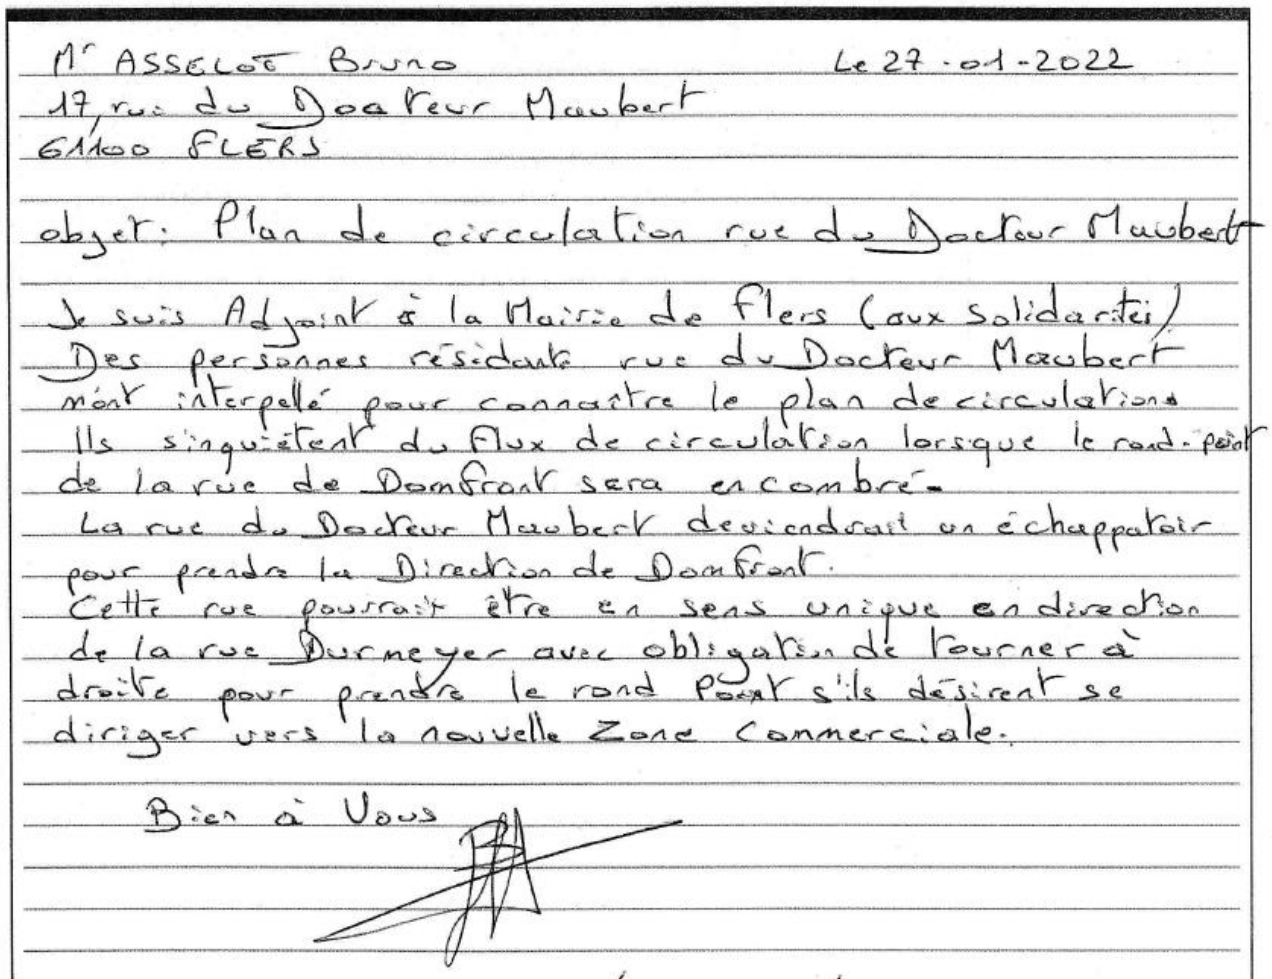 Mr ASSELOT Bruno Le 27-01-2022
17, rue du Docteur Maubert
61100 FLERS
objet: Plan de circulation rue du Docteur Maubert
Je suis Adjoint à la Mairie de Flers (aux Solidarités)
Des personnes résidants rue du Docteur Maubert
m'ont interpellé pour connaître le plan de circulations
Ils s'inquiètent du flux de circulation lorsque le rond-point
de la rue de Domfront sera encombré-
La rue du Docteur Maubert deviendrait un échappatoir
pour prendre la Direction de Domfront.
Cette rue pourrait être en sens unique en direction
de la rue Durmeyer avec obligation de tourner à
droite pour prendre le rond Point s'ils désirent se
diriger vers la nouvelle Zone Commerciale.
Bien à Vous